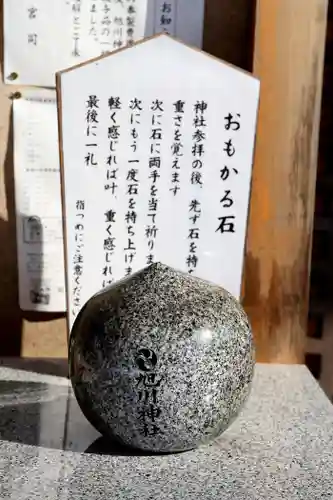 おもかる石
神社参拝の後、先ず石を持ち
重さを覚えます
次に石に両手を当て祈りま
次にもう一度石を持ち上げま
軽く感じれば叶、重く感じれば
最後に一礼
指つめにご注意くだ
旭川神社
宮司
お知